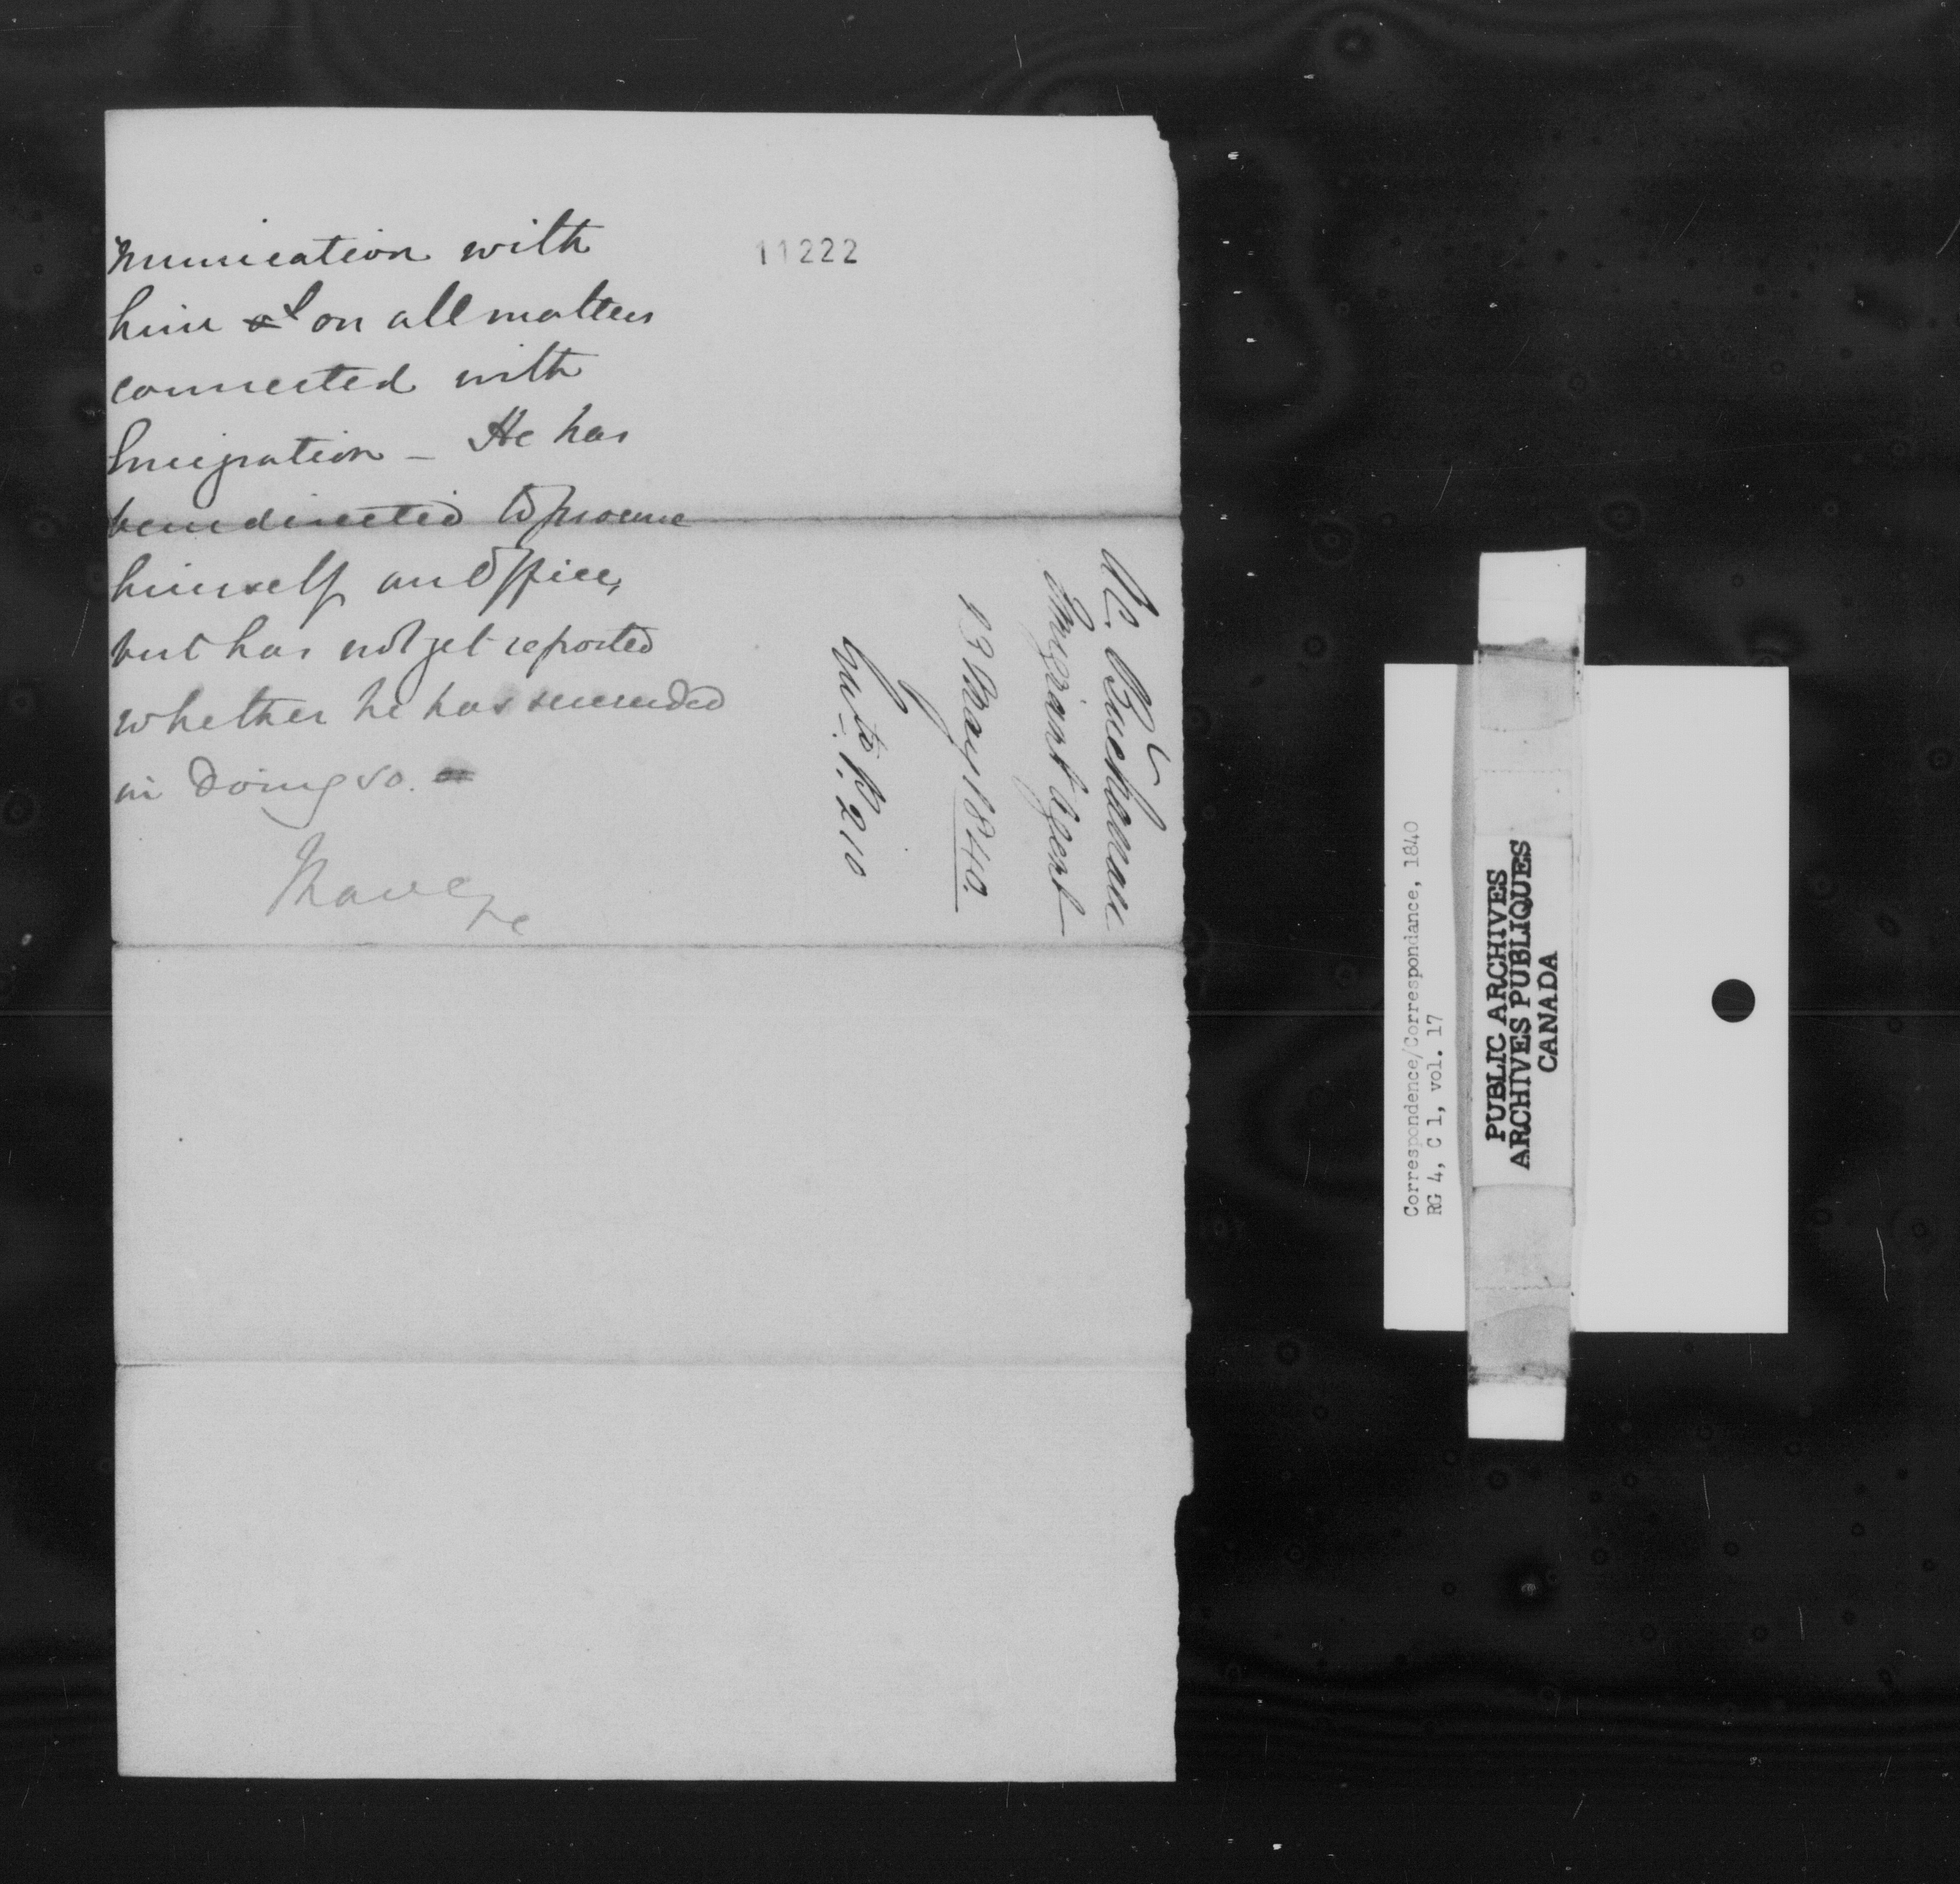 munication with
him & on all matters
connected with
Emigration – He has
been directed to procure
himself an Office,
but has not yet reported
whether he has succeeded
in doing so.
I have &c
11222
To
Mr. Buchanan
Emigrant Agent
13 May 1840.
P. 210
Correspondence/Correspondance, 1840
RG 4, C 1, vol. 17
PUBLIC ARCHIVES
ARCHIVES PUBLIQUES
CANADA